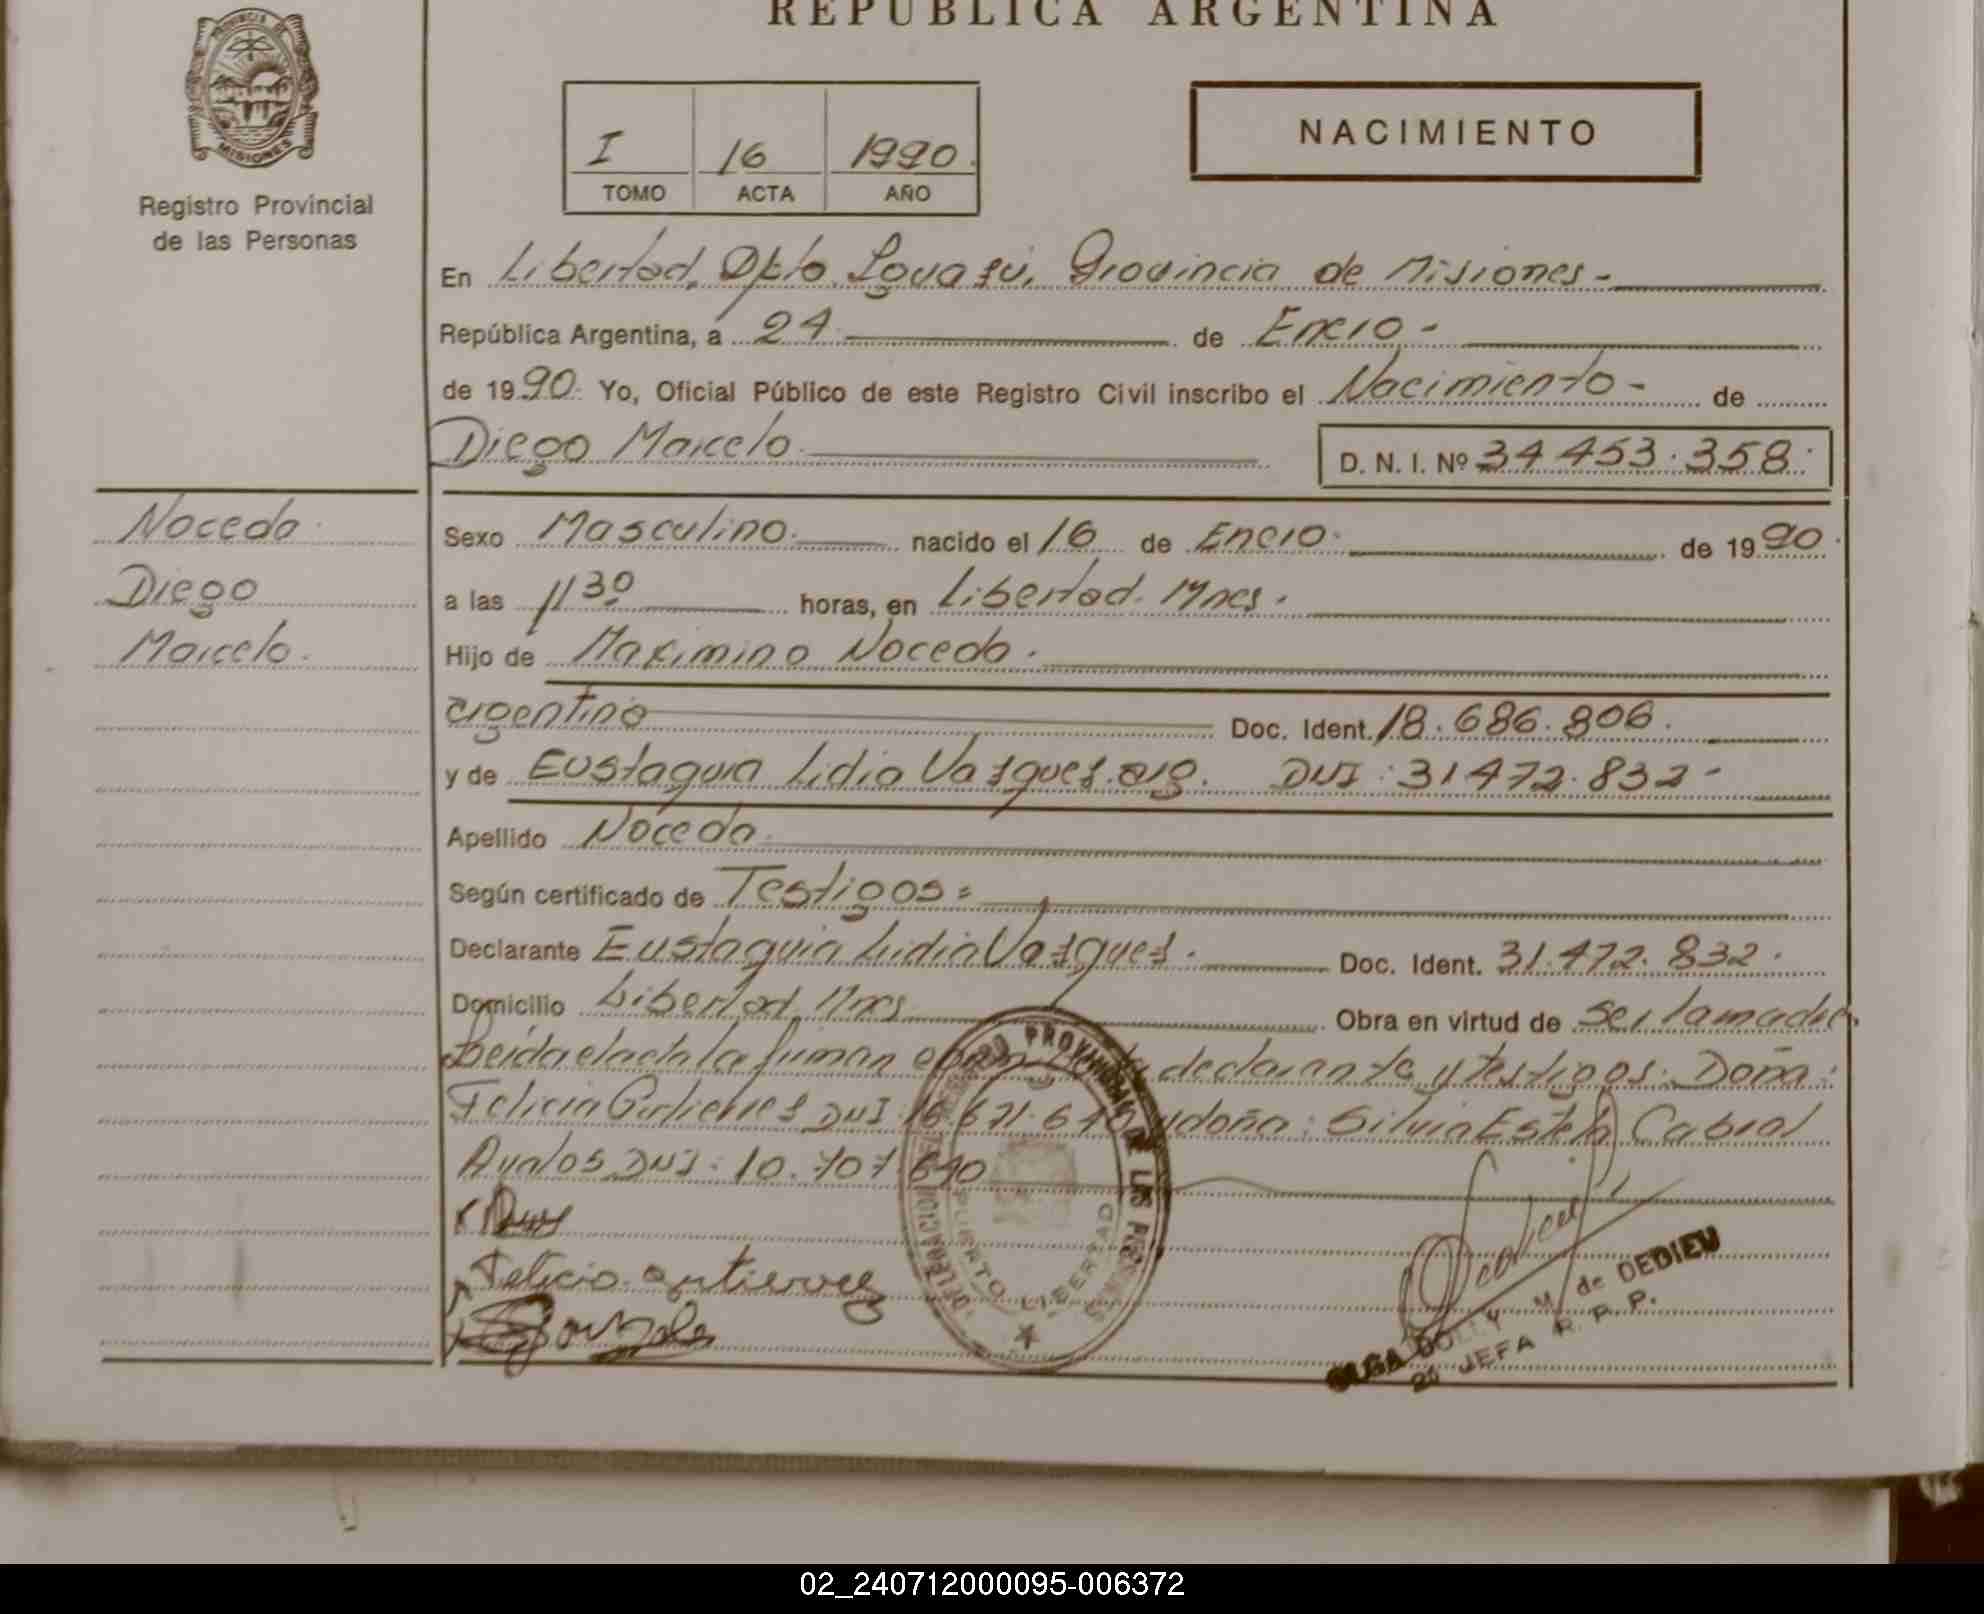 REPUBLICA ARGENTINA
PROVINCIA DE
MISIONES
Registro Provincial
de las Personas
I 16 1990.
TOMO ACTA AÑO
NACIMIENTO
En Libertad, Dpto Iguasú, Provincia de Misiones-
República Argentina, a 24 de Enero-
de 1990. Yo, Oficial Público de este Registro Civil inscribo el Nacimiento- de
Diego Marcelo D. N. I. Nº 34 453.358.
Noceda
Diego
Marcelo.
Sexo Masculino. nacido el 16 de Enero. de 1990.
a las 11 30 horas, en Libertad. Mnes.
Hijo de Maximino Noceda.
argentino Doc. Ident. 18.686.806.
y de Eustaquia Lidia Vasques. arg. DNI: 31 472.832-
Apellido Noceda.
Según certificado de Testigos=
Declarante Eustaquia Lidia Vasques. Doc. Ident. 31.472.832.
Domicilio Libertad Mnes Obra en virtud de ser la madre.
Leida el acta la firman declarante y testigos: Doña:
Felicia Gutierres DNI: 16.671.640 y doña: Silvia Estela Cabral
Avalos DNI: 10.707.640
Felicia gutierrez
REGISTRO PROVINCIAL DE LAS PERSONAS
DELEGACION
PUERTO LIBERTAD
OLGA DOLLY M. de DEDIEU
JEFA R. P. P.
02_240712000095-006372